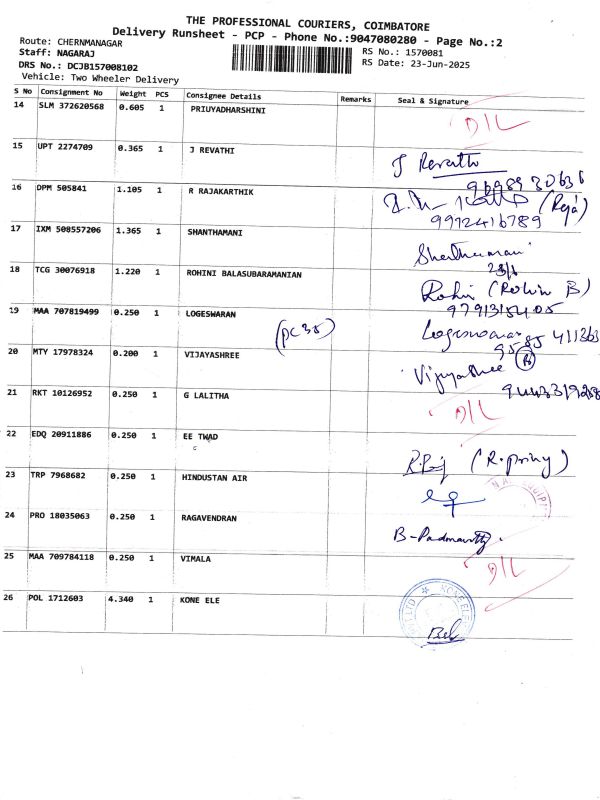 THE PROFESSIONAL COURIERS, COIMBATORE
Delivery Runsheet - PCP - Phone No.:9047080280 - Page No.:2
Route: CHERNMANAGAR
Staff: NAGARAJ
DRS No.: DCJB157008102
Vehicle: Two Wheeler Delivery
RS No.: 1570081
RS Date: 23-Jun-2025
S No Consignment No Weight PCS Consignee Details Remarks Seal & Signature
14 SLM 372620568 0.605 1 PRIUYADHARSHINI D/L
15 UPT 2274709 0.365 1 J REVATHI J Revathi
9698930636
16 DPM 505841 1.105 1 R RAJAKARTHIK (Raja)
9972416789
17 IXM 508557206 1.365 1 SHANTHAMANI Shanthamani
23/6
18 TCG 30076918 1.220 1 ROHINI BALASUBARAMANIAN Rohini (Rohini B)
9791315405
19 MAA 707819499 0.250 1 LOGESWARAN Logeswaran
9585 411363
(PC 35)
20 MTY 17978324 0.200 1 VIJAYASHREE Vijayashree
9443319258
21 RKT 10126952 0.250 1 G LALITHA D/L
22 EDQ 20911886 0.250 1 EE TWAD (R. priny)
23 TRP 7968682 0.250 1 HINDUSTAN AIR
24 PRO 18035063 0.250 1 RAGAVENDRAN B-Padmavathy
25 MAA 709784118 0.250 1 VIMALA D/L
26 POL 1712603 4.340 1 KONE ELE
KONE ELE
LTD